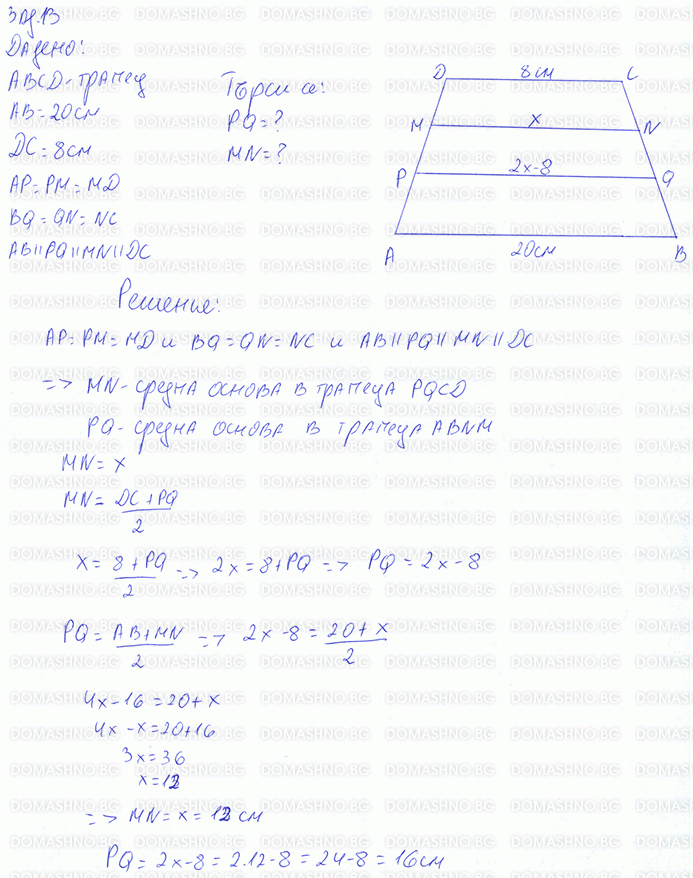 Зад.13
Дадено:
ABCD-трапец
AB=20см
DC=8см
AP=PM=MD
BQ=QN=NC
AB||PQ||MN||DC
Търси се:
PQ=?
MN=?
D 8см C
M x N
P 2x-8 Q
A 20см B
Решение:
AP=PM=MD и BQ=QN=NC и AB||PQ||MN||DC
=> MN-средна основа в трапеца PQCD
PQ-средна основа в трапеца ABNM
MN=x
MN=DC+PQ/2
x=8+PQ/2 => 2x=8+PQ => PQ=2x-8
PQ=AB+MN/2 => 2x-8=20+x/2
4x-16=20+x
4x-x=20+16
3x=36
x=12
=> MN=x=12см
PQ=2x-8=2.12-8=24-8=16см
DOMASHNO.BG